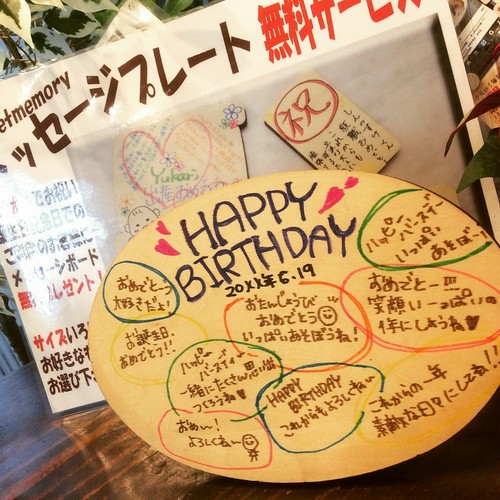 etmemory
ッセージプレート 無料サービス
でお祝い
メッセージボード
無料プレゼント!
サイズいろ
お好きな
お選び下
祝
Yukari
HAPPY
BIRTHDAY
20XX年6.19
おめでとう
大好きだよ!
お誕生日
おめでとう!!
おたんじょうび
おめでとう
いっぱいあそぼうね!
ハッピー
バースデー
いっぱい
あそぼ
おめでとー!!!
笑顔いーっぱいの
年にしようね♥
ハッピー
バースディー
一緒にたくさん思い出
つくろうね♥
HAPPY
BIRTHDAY
これからもよろしくねー
これからの一年
素敵な日々にしてね!!
おめー!
よろしくねー